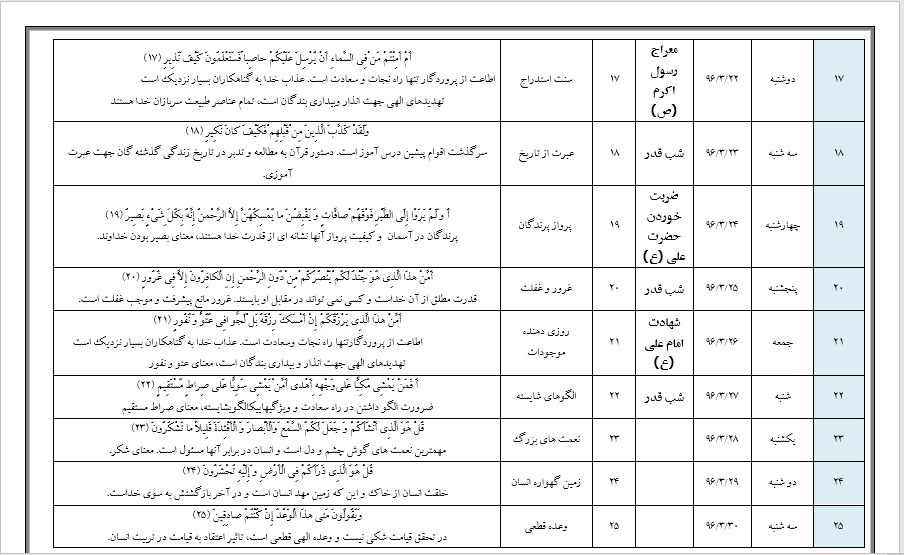 ۱۷ دوشنبه ۹۶/۳/۲۲ معراج رسول اکرم (ص) ۱۷ سنت استدراج
أَمْ أَمِنْتُمْ مَنْ فِي السَّماءِ أَنْ يُرْسِلَ عَلَيْكُمْ حاصِباً فَسَتَعْلَمُونَ كَيْفَ نَذِيرِ (۱۷)
اطاعت از پروردگار تنها راه نجات و سعادت است. عذاب خدا به گناهکاران بسیار نزدیک است
تهدیدهای الهی جهت انذار وبیداری بندگان است، تمام عناصر طبیعت سربازان خدا هستند
۱۸ سه شنبه ۹۶/۳/۲۳ شب قدر ۱۸ عبرت از تاریخ
وَلَقَدْ كَذَّبَ الَّذِينَ مِنْ قَبْلِهِمْ فَكَيْفَ كانَ نَكِيرِ (۱۸)
سرگذشت اقوام پیشین درس آموز است. دستور قرآن به مطالعه و تدبر در تاریخ زندگی گذشته گان جهت عبرت
آموزی.
۱۹ چهارشنبه ۹۶/۳/۲۴ ضربت خوردن حضرت علی (ع) ۱۹ پرواز پرندگان
أَ وَلَمْ يَرَوْا إِلَى الطَّيْرِ فَوْقَهُمْ صافَّاتٍ وَ يَقْبِضْنَ ما يُمْسِكُهُنَّ إِلاَّ الرَّحْمنُ إِنَّهُ بِكُلِّ شَيْءٍ بَصِيرٌ (۱۹)
پرندگان در آسمان و کیفیت پرواز آنها نشانه ای از قدرت خدا هستند، معنای بصیر بودن خداوند.
۲۰ پنجشنبه ۹۶/۳/۲۵ شب قدر ۲۰ غرور و غفلت
أَمَّنْ هذَا الَّذِي هُوَ جُنْدٌ لَكُمْ يَنْصُرُكُمْ مِنْ دُونِ الرَّحْمنِ إِنِ الْكافِرُونَ إِلاَّ فِي غُرُورٍ (۲۰)
قدرت مطلق از آن خداست و کسی نمی تواند در مقابل او بایستد. غرور مانع پیشرفت و موجب غفلت است.
۲۱ جمعه ۹۶/۳/۲۶ شهادت امام علی (ع) ۲۱ روزی دهنده موجودات
أَمَّنْ هذَا الَّذِي يَرْزُقُكُمْ إِنْ أَمْسَكَ رِزْقَهُ بَلْ لَجُّوا فِي عُتُوٍّ وَ نُفُورٍ (۲۱)
اطاعت از پروردگارتنها راه نجات وسعادت است. عذاب خدا به گناهکاران بسیار نزدیک است
تهدیدهای الهی جهت انذار و بیداری بندگان است، معنای عتو و نفور
۲۲ شنبه ۹۶/۳/۲۷ شب قدر ۲۲ الگوهای شایسته
أَ فَمَنْ يَمْشِي مُكِبًّا عَلى وَجْهِهِ أَهْدى أَمَّنْ يَمْشِي سَوِيًّا عَلى صِراطٍ مُسْتَقِيمٍ (۲۲)
ضرورت الگو داشتن در راه سعادت و ویژگیهاییکالگویشایسته، معنای صراط مستقیم
۲۳ یکشنبه ۹۶/۳/۲۸ ۲۳ نعمت های بزرگ
قُلْ هُوَ الَّذِي أَنْشَأَكُمْ وَ جَعَلَ لَكُمُ السَّمْعَ وَالْأَبْصارَ وَ الْأَفْئِدَةَ قَلِيلاً ما تَشْكُرُونَ (۲۳)
مهمترین نعمت های گوش چشم و دل است و انسان در برابر آنها مسئول است. معنای شکر.
۲۴ دو شنبه ۹۶/۳/۲۹ ۲۴ زمین گهواره انسان
قُلْ هُوَ الَّذِي ذَرَأَكُمْ فِي الْأَرْضِ وَ إِلَيْهِ تُحْشَرُونَ (۲۴)
خلقت انسان از خاک و این که زمین مهد انسان است و در آخر بازگشتش به سوی خداست.
۲۵ سه شنبه ۹۶/۳/۳۰ ۲۵ وعده قطعی
وَيَقُولُونَ مَتى هذَا الْوَعْدُ إِنْ كُنْتُمْ صادِقِينَ (۲۵)
در تحقق قیامت شکی نیست و وعده الهی قطعی است، تاثیر اعتقاد به قیامت در تربیت انسان.